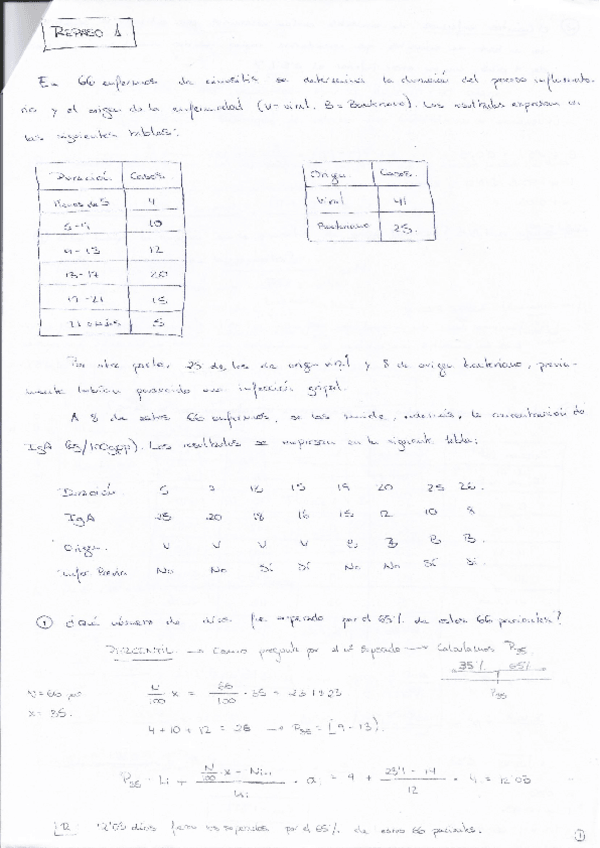 REPASO 1
En 66 enfermos de sinusitis se determina la duración del proceso inflamato-
rio y el origen de la enfermedad (V=viral, B=Bacteriano). Los resultados expresan en
las siguientes tablas:
Duración Casos
Menos de 5 4
5-9 10
9-13 12
13-17 20
17-21 15
21 o más 5
Origen Casos
Viral 41
Bacteriano 25
Por otra parte, 25 de los de origen viral y 8 de origen bacteriano, previa-
mente habían padecido una infección gripal.
A 8 de estos 66 enfermos, se les mide, además, la concentración de
IgA. Los resultados se expresan en la siguiente tabla:
Duración 5 15 19 20 25 26
IgA 25 20 18 16 15 12 10 8
Origen V V V V B B B B
Infec. Previa No No Sí Sí No No Sí Sí
① ¿Qué número de días fue superado por el 65% de estos 66 pacientes?
PERCENTIL → Como pregunta por el nº superado → Calculamos P35
35% 65%
P35
N=66 por
x=35.
N/100 x = 66/100 · 35 = 23'1 ≈ 23
4+10+12=26 → P35 = [9-13).
P35 = Li + (N/100 · x − Ni-1)/ni · ai = 9 + (23'1 − 14)/12 · 4 = 12'03
R 12'03 días fueron superados por el 65% de estos 66 pacientes.
1